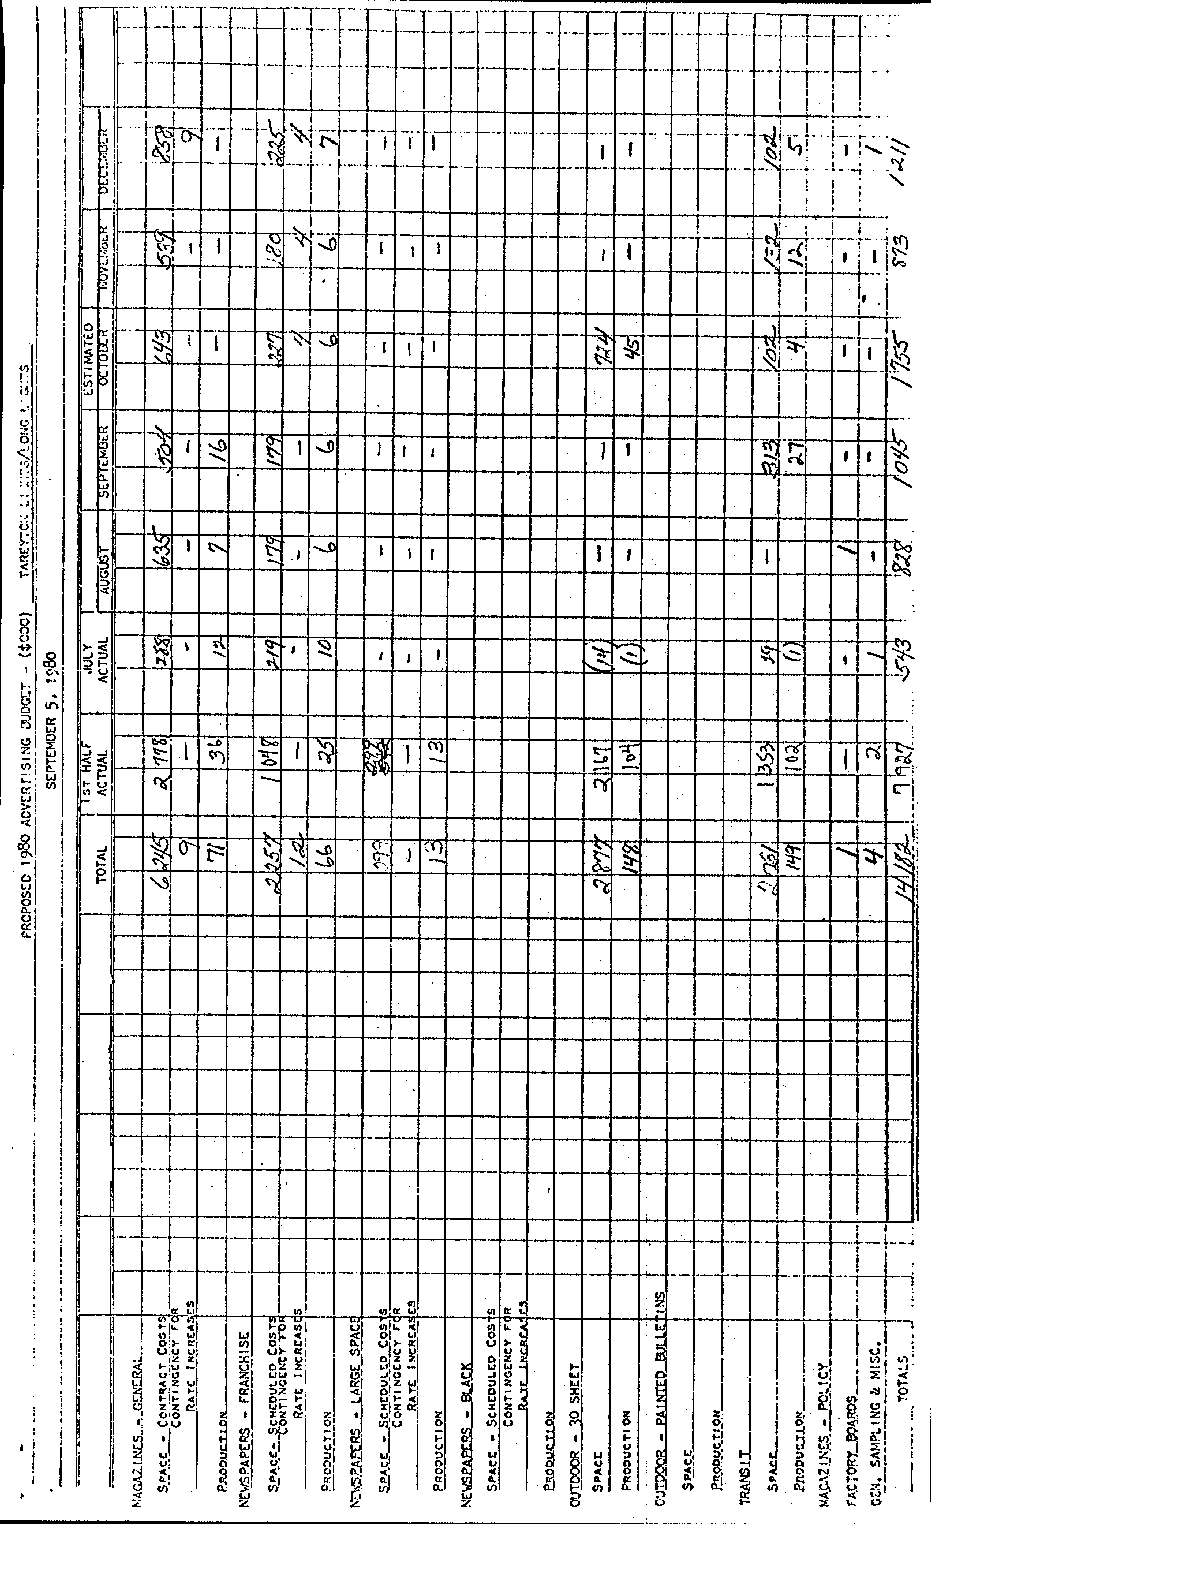 PROPOSED 1980 ADVERTISING BUDGET - ($000) TAREYTON LIGHTS/LONG LIGHTS
SEPTEMBER 5, 1980
ESTIMATED
TOTAL 1ST HALF ACTUAL JULY ACTUAL AUGUST SEPTEMBER OCTOBER NOVEMBER DECEMBER
MAGAZINES - GENERAL
SPACE - CONTRACT COSTS 6245 2778 288 635 504 643 539 858
CONTINGENCY FOR RATE INCREASES 9 - - - - - - 9
PRODUCTION 71 36 12 7 16 - - -
NEWSPAPERS - FRANCHISE
SPACE - SCHEDULED COSTS 2257 1048 219 179 179 227 180 225
CONTINGENCY FOR RATE INCREASES 12 - - - - 4 4 4
PRODUCTION 66 25 10 6 6 6 6 7
NEWSPAPERS - LARGE SPACE
SPACE - SCHEDULED COSTS 299 - - - - - -
CONTINGENCY FOR RATE INCREASES - - - - - - - -
PRODUCTION 13 13 - - - - - -
NEWSPAPERS - BLACK
SPACE - SCHEDULED COSTS
CONTINGENCY FOR RATE INCREASES
PRODUCTION
OUTDOOR - 30 SHEET
SPACE 2877 2167 (14) - - 724 - -
PRODUCTION 148 104 (1) - - 45 - -
OUTDOOR - PAINTED BULLETINS
SPACE
PRODUCTION
TRANSIT
SPACE 1353 - 313 102 132 102
PRODUCTION 149 102 (1) 27 4 12 5
MAGAZINES - POLICY
FACTORY BOARDS 1 - - 1 - - - -
GEN. SAMPLING & MISC. 4 2 1 - - - - 1
TOTALS 14182 7927 543 828 1045 1755 873 1211